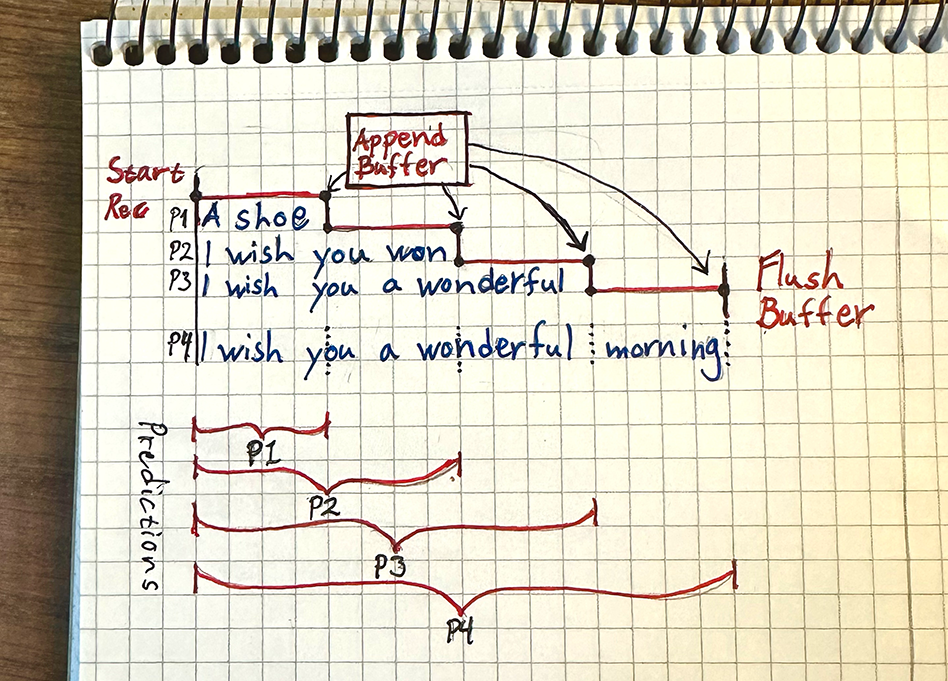 Append
Buffer
Start
Rec
P1 A shoe
P2 I wish you won
P3 I wish you a wonderful
Flush
Buffer
P4 I wish you a wonderful morning
Predictions
P1
P2
P3
P4